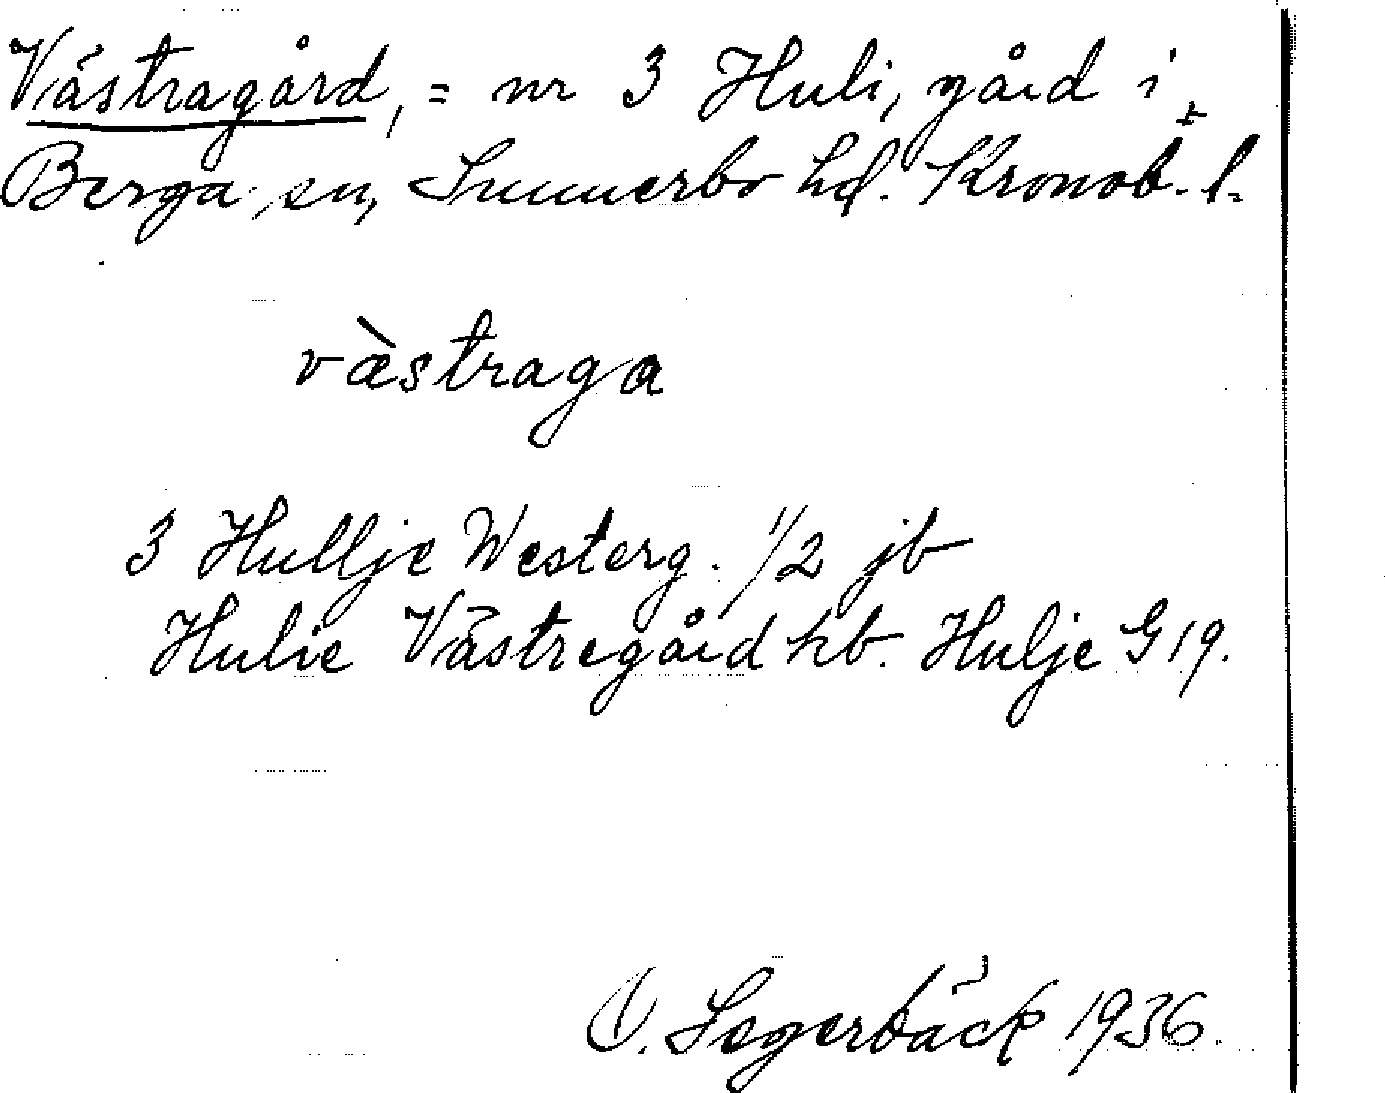 Västragård, = nr 3 Huli, gård i
Berga sn, Sunnerbo hd. Kronob. l.
vàstraga
3 Hullje Westerg. 1/2 jb
Hulie Västregård hb. Hulje G 19.
O. Segerbäck 1936.